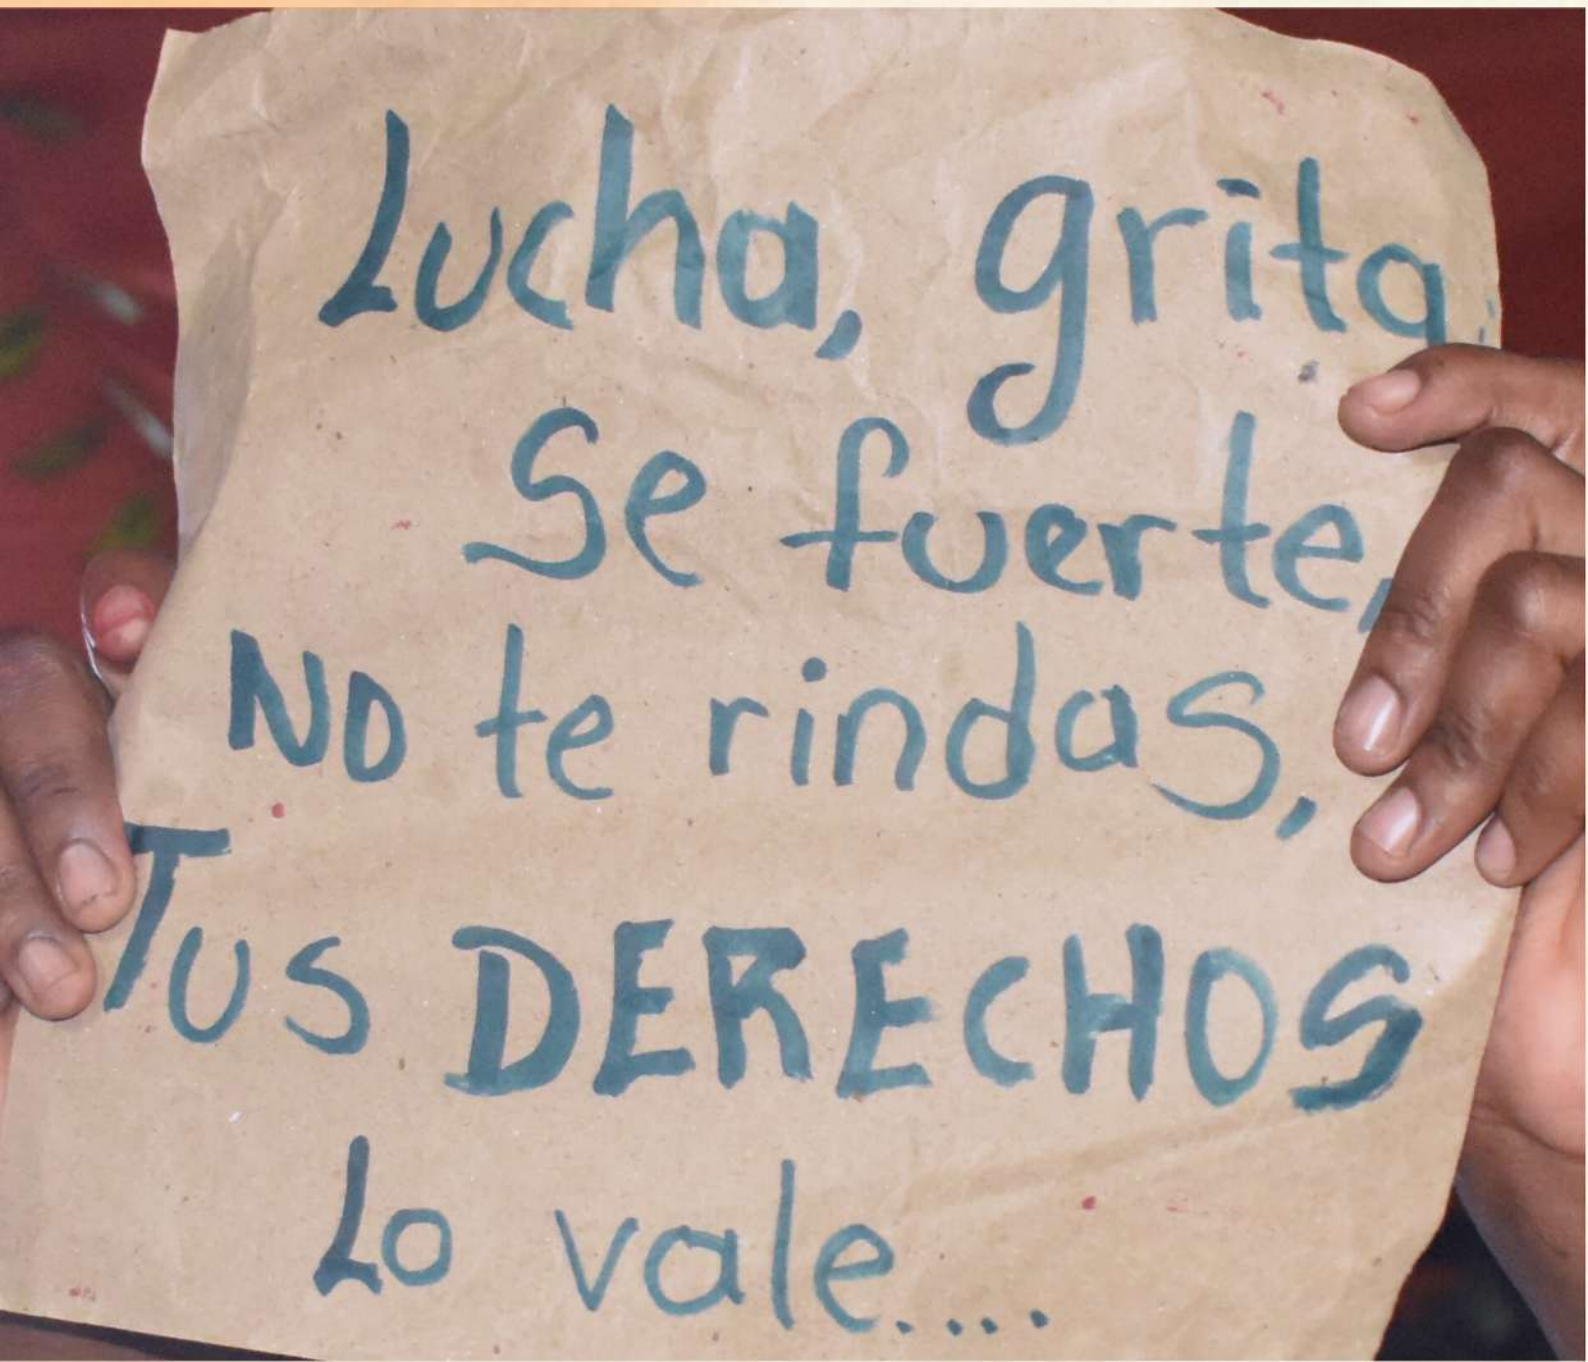 Lucha, grita,
Se fuerte,
No te rindas,
Tus DERECHOS
Lo vale....